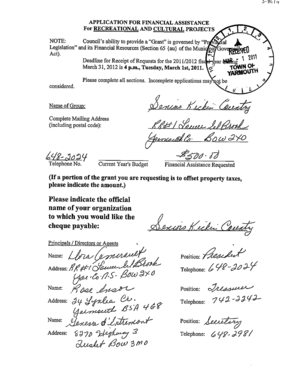 APPLICATION FOR FINANCIAL ASSISTANCE
For RECREATIONAL and CULTURAL PROJECTS
NOTE: Council's ability to provide a "Grant" is governed by "Provincial
Legislation" and its Financial Resources (Section 65 (au) of the Municipal Government
Act).
RECEIVED
MAR 1 2011
TOWN OF
YARMOUTH
Deadline for Receipt of Requests for the 2011/2012 fiscal year
March 31, 2012 is 4 p.m., Tuesday, March 1st, 2011.
Please complete all sections. Incomplete applications may not be
considered.
Name of Group: Seniors Kickin Country
Complete Mailing Address
(including postal code): RR#1
Yarmouth Co. B0W 2X0
648-2024 $500.00
Telephone No. Current Year's Budget Financial Assistance Requested
(If a portion of the grant you are requesting is to offset property taxes,
please indicate the amount.)
Please indicate the official
name of your organization
to which you would like the
cheque payable: Seniors Kickin County
Principals / Directors or Assets
Name: Position: President
Address: RR#1 Telephone: 648-2024
Yar. Co. N.S. B0W 2X0
Name: Rose Position: Treasurer
Address: 24 Telephone: 742-2242
Yarmouth B5A 4G8
Name: Geneva d'Entremont Position: Secretary
Address: 5270 Highway 3 Telephone: 648-2981
Tusket B0W 3M0